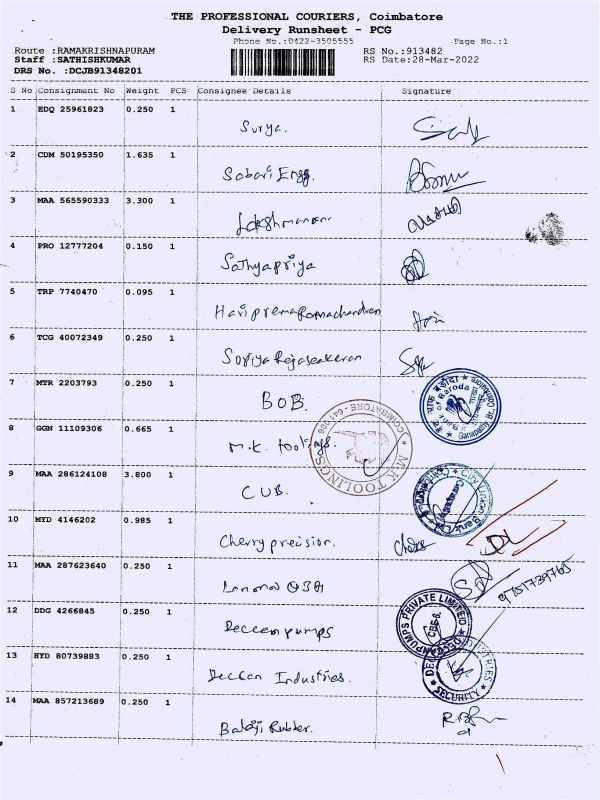 THE PROFESSIONAL COURIERS, Coimbatore
Delivery Runsheet - PCG
Phone No.:0422-3505555 Page No.:1
Route :RAMAKRISHNAPURAM RS No.:913482
Staff :SATHISHKUMAR RS Date:28-Mar-2022
DRS No. :DCJB91348201
S No Consignment No Weight PCS Consignee Details Signature
1 EDQ 25961823 0.250 1
Surya.
2 CDM 50195350 1.635 1
Sabari Engg.
3 MAA 565590333 3.300 1
Lakshmanan
4 PRO 12777204 0.150 1
Sathyapriya
5 TRP 7740470 0.095 1
Hari prema Ramachandran
6 TCG 40072349 0.250 1
7 MTR 2203793 0.250 1
BOB.
8 GGN 11109306 0.665 1
M.K. toolings.
M.K TOOLINGS COIMBATORE - 641 006
9 MAA 286124108 3.800 1
CUB.
10 MYD 4146202 0.985 1
Cherry precision.
11 MAA 287623640 0.250 1
12 DDG 4266845 0.250 1
Deccan pumps
DECCAN PUMPS PRIVATE LIMITED
CBE-6.
13 HYD 80739883 0.250 1
Deccan Industries.
SECURITY
14 MAA 857213689 0.250 1
Balaji Rubber.